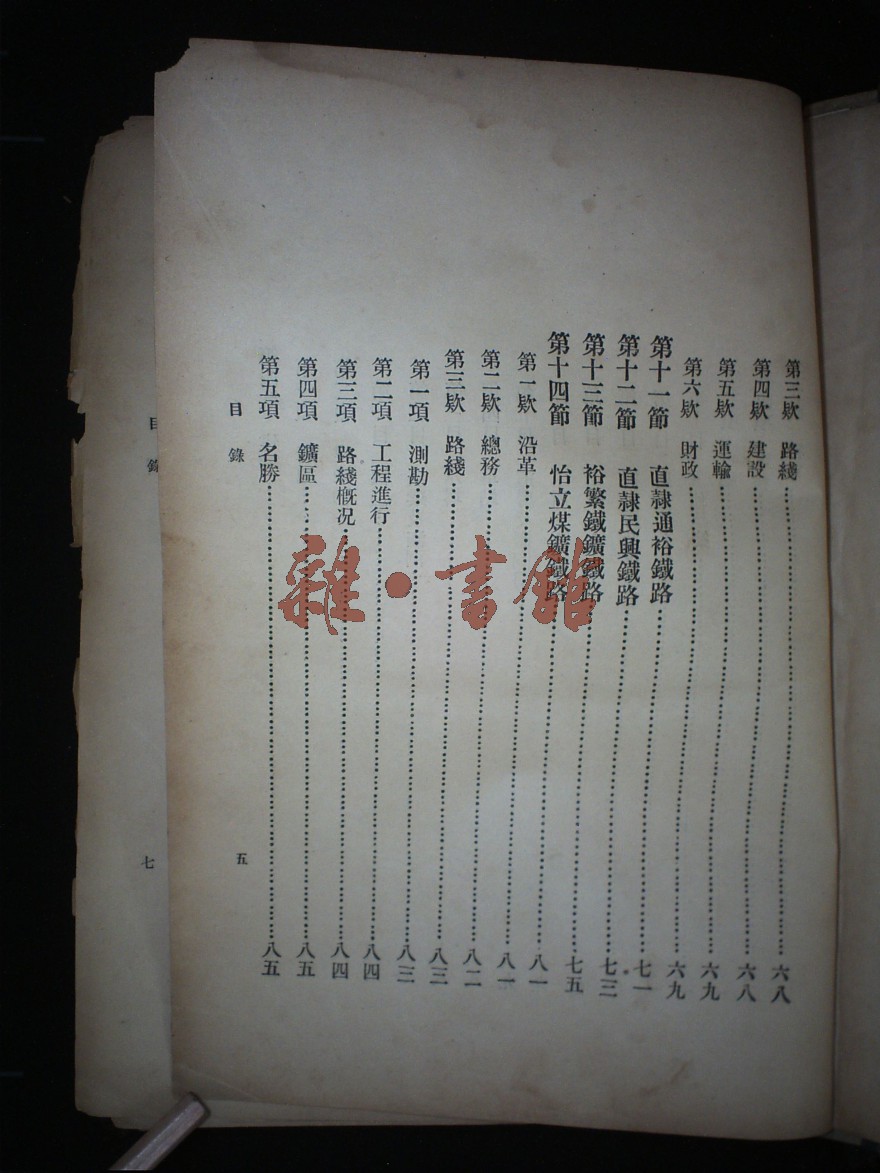 第三欵 路綫……六八
第四欵 建設……六八
第五欵 運輸……六九
第六欵 財政……六九
第十一節 直隸通裕鐵路……七一
第十二節 直隸民興鐵路……七三
第十三節 裕繁鐵鑛鐵路……七五
第十四節 怡立煤鑛鐵路……八一
第一欵 沿革……八一
第二欵 總務……八二
第三欵 路綫……八三
第一項 測勘……八三
第二項 工程進行……八四
第三項 路綫概况……八四
第四項 鑛區……八五
第五項 名勝……八五
目錄 五
目錄 七
雜·書館